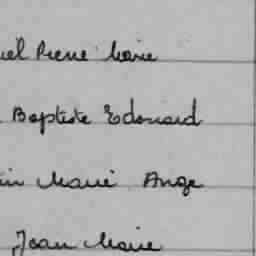 Pierre Marie
Baptiste Edouard
Marie Ange
Jean Marie